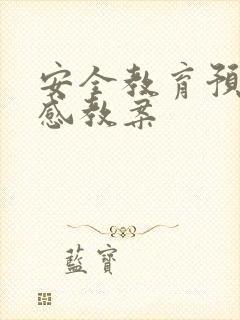 安全教育预
感教案
藍寶